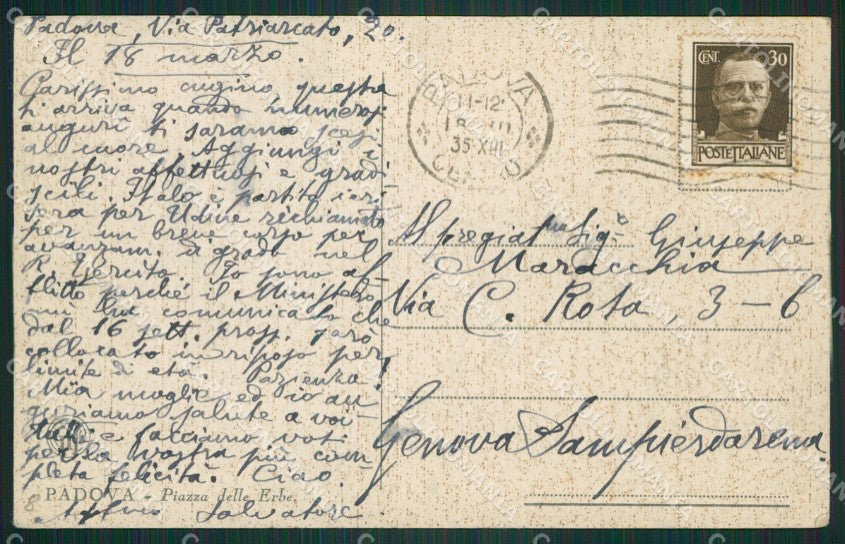 Padova, Via Patriarcato, 20.
Il 18 marzo.
Carissimo cugino, questa
ti arriva quando numerosi
auguri ti saranno scesi
al cuore. Aggiungi i
nostri affettuosi e gradi
scili. Italo è partito ieri
sera per Udine richiamato
per un breve corso per
avanzam. di grado nel
R. Esercito. Io sono af-
flitto perché il Ministero
mi ha comunicato che
dal 16 sett. pross. sarò
collocato in riposo per
limite di età. Pazienza!
Mia moglie ed io au-
guriamo salute a voi
tutti e facciamo voti
per la vostra più com-
pleta felicità. Ciao.
PADOVA - Piazza delle Erbe.
Salvatore
PADOVA
11-12
35-XIII
CENT. 30
POSTE ITALIANE
Al pregiat.mo Sig.r Giuseppe
Maracchia
Via C. Rota, 3-6
Genova Sampierdarena
CARTOLINOMANIA